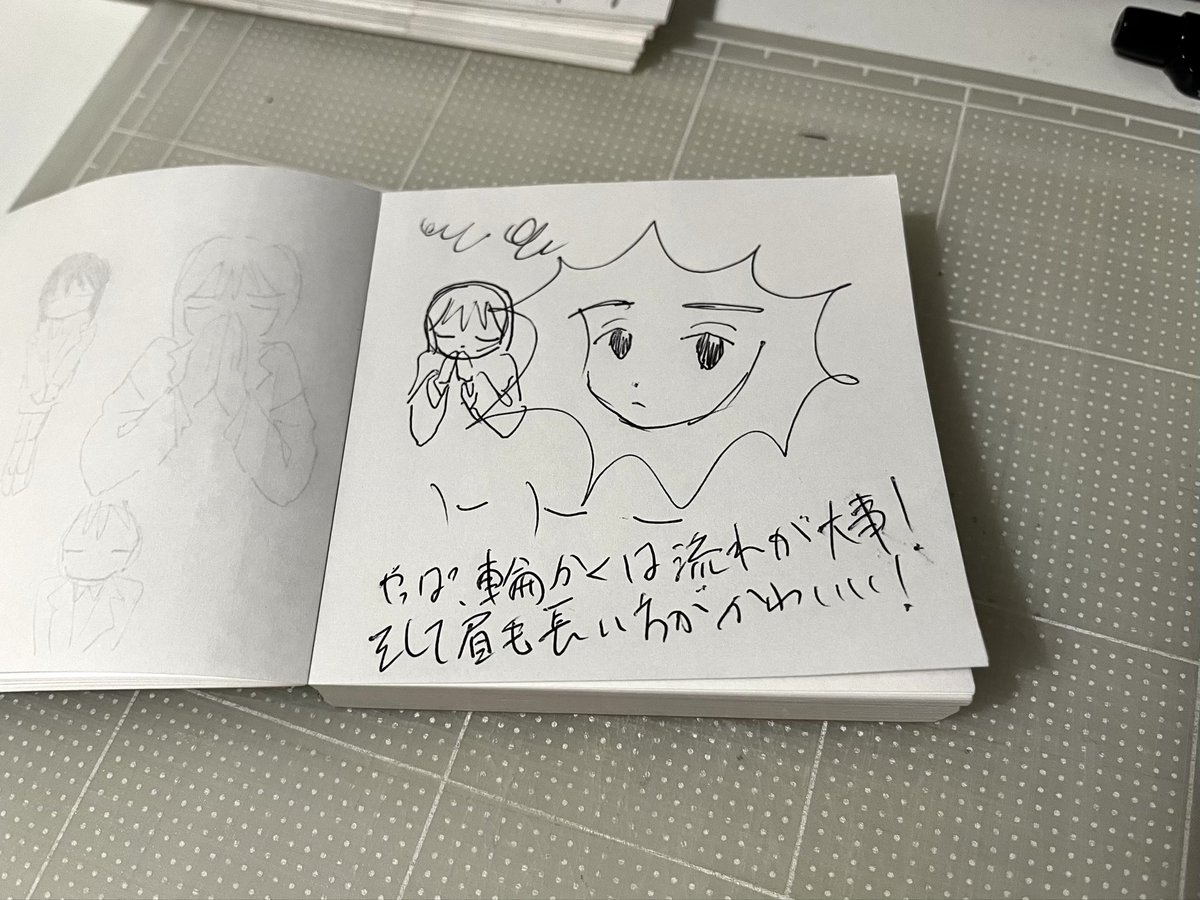 やっぱ、輪かくは流れが大事!
そして眉も長い方がかわいい!